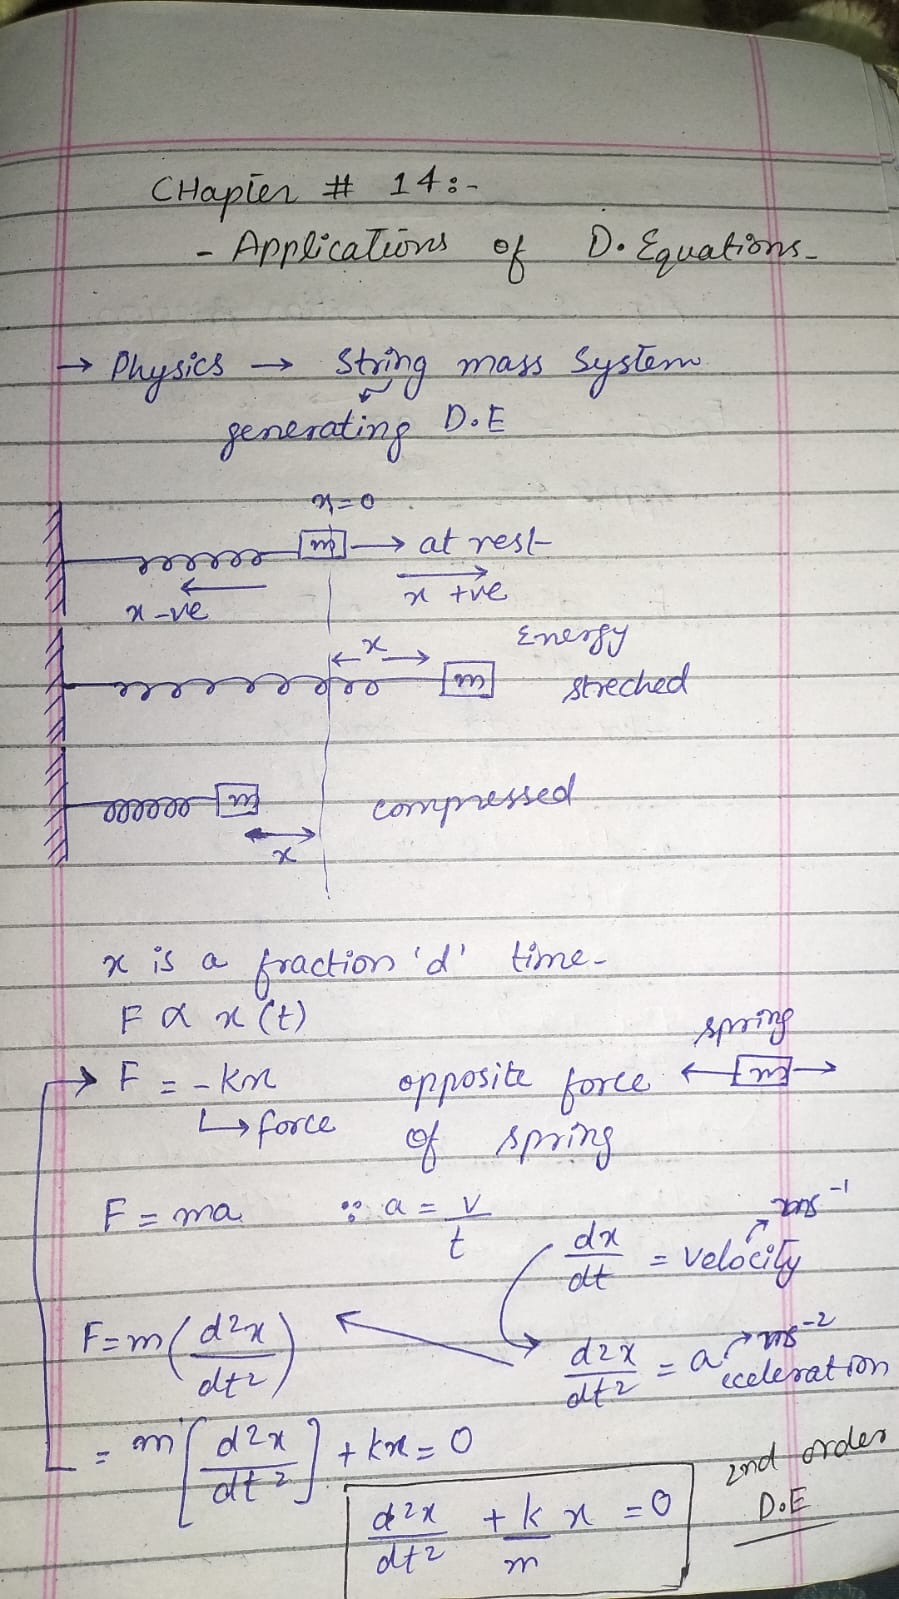 CHapter # 14:-
- Applications of D. Equations-
→ Physics → String mass System
generating D.E
x=0
m → at rest
x -ve
x +ve
x
Energy
m streched
m compressed
x
x is a fraction 'd' time-
F ∝ x(t)
spring
→ F = -kx opposite force ← m →
↳ force of spring
F = ma ∵ a = v/t
ms⁻¹
dx/dt = velocity
F = m(d²x/dt²)
d²x/dt² = acceleration ms⁻²
= m[d²x/dt²] + kx = 0
2nd order
d²x/dt² + k/m x = 0
D.E